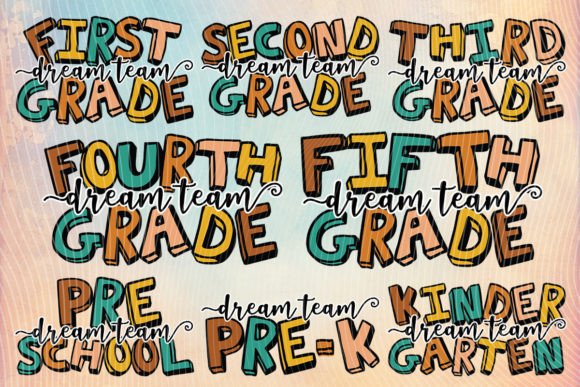 FIRST
dream team
GRADE
SECOND
dream team
GRADE
THIRD
dream team
GRADE
FOURTH
dream team
GRADE
FIFTH
dream team
GRADE
PRE
dream team
SCHOOL
dream team
PRE-K
KINDER
dream team
GARTEN